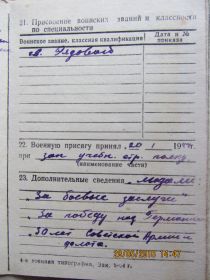 21. Присвоение воинских званий и классности
по специальности
Воинское звание, классная квалификация
Дата и №
приказа
гв. Рядового
22. Военную присягу принял 20 / 1 194
при зап. учебн. стр. полку
(наименование части)
23. Дополнительные сведения Медали
"За боевые заслуги"
"За победу над Германией
"30 лет Советской Армии и
флота.
4-я военная типография. Зак.
28/05/2015 14:47